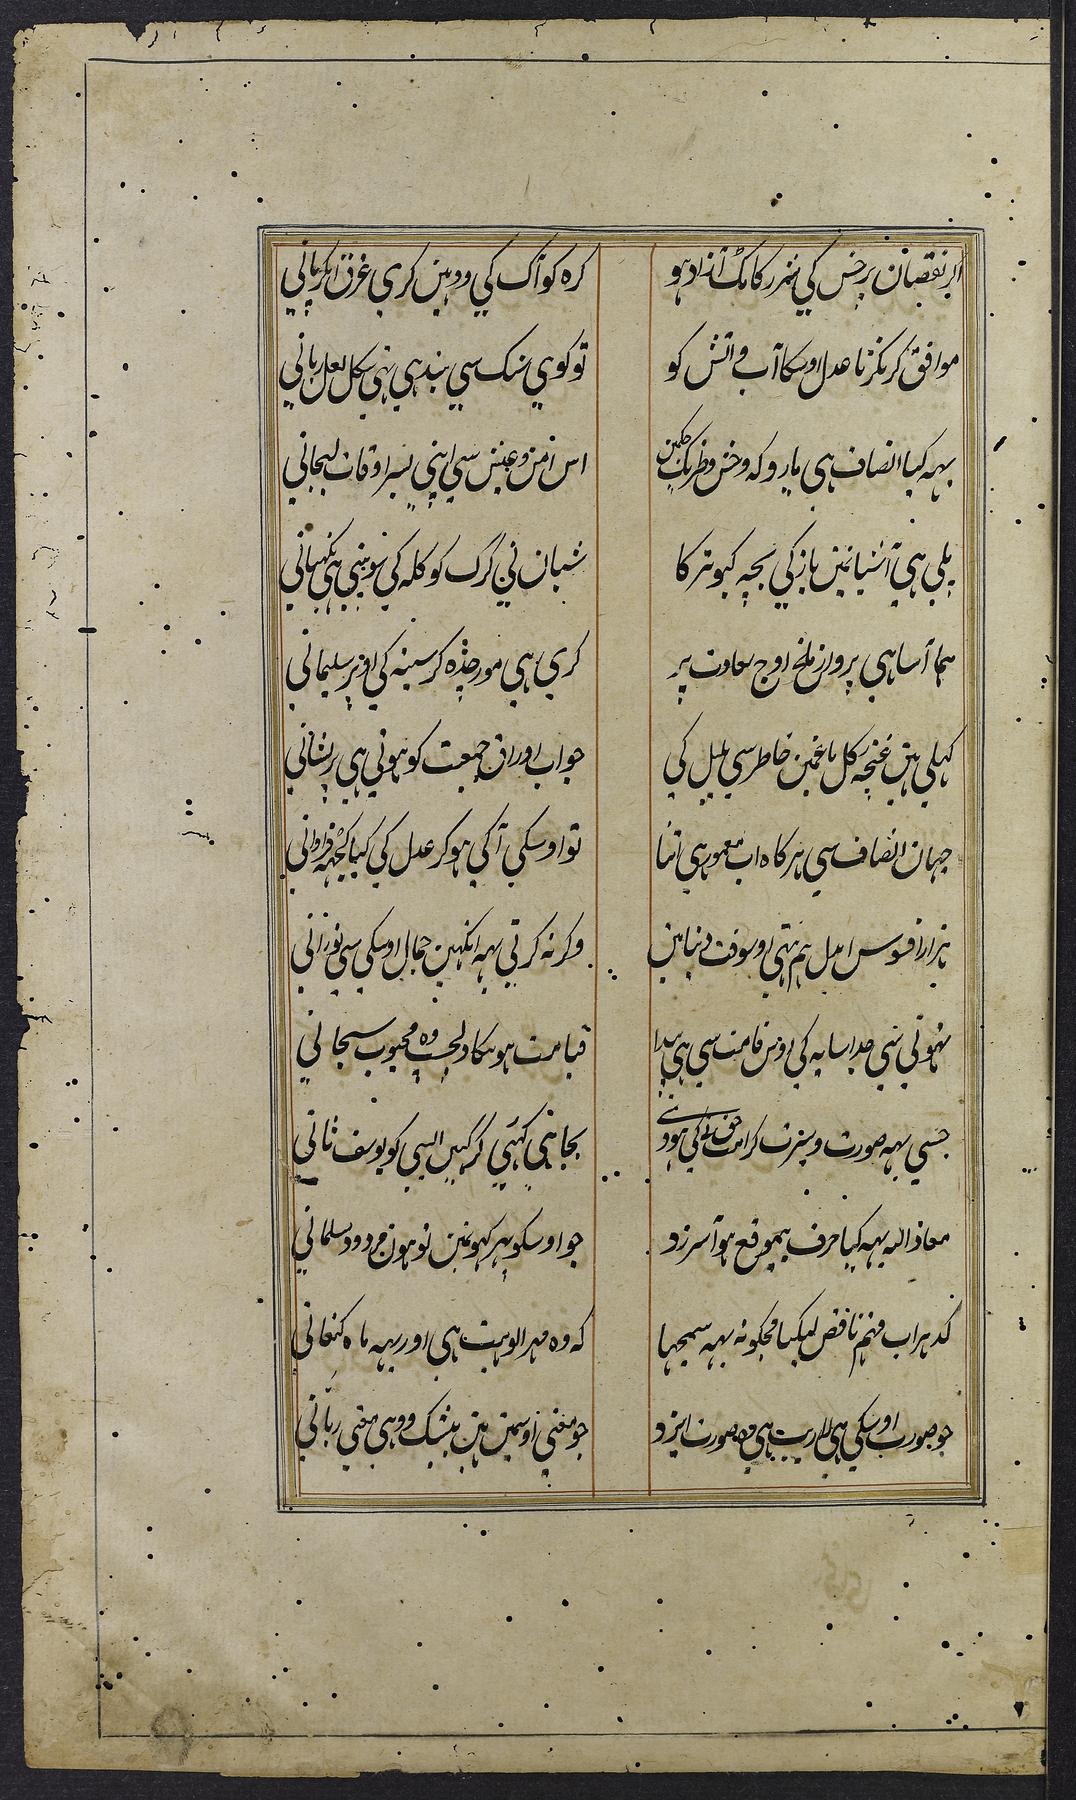 اکر نقصان پر خس کی شرر کا مک ارادہ ہو کرہ کو آک کی ووہین کری غرق انکر پانی
موافق کر نکرتا عدل اوسکا آب و اتش کو تو کوی سنک سی بندہی نہی شکل لعل رمانی
یہہ کیا انصاف ہی یارو کہ وحش و طیر تک جکمین اس امن و عیش سی اپنی بسر اوقات لیجانی
پلی ہی آشیانمین باز کی بچہ کبوتر کا شبان نی کرک کو کلہ کی سونپی ہی نکہبانی
ہما آسا ہی پرواز ملخ اوج سعادت پر کری ہی مور چڑہ کر سینہ کی اوپر سلیمانی
کہلی ہین غنچہ کل باغمین خاطر سی بلبل کی جو اب اوراق جمعیت کو ہوتی ہی پریشانی
جہان انصاف سی ہر کاہ اب معمور ہی اتنا تو اوسکی آکی ہو کر عدل کی کیا کچہہ فراوانی
ہزار افسوس ای دل ہم نہ تہی اوسوقت دنیا مین وکرنہ کرتی یہہ انکہین جمال اوسکی سی نورانی
نہوتی سی جدا سایہ کی اوس قامت سی ہی پیدا قیامت ہوئیکا دلچسپ وہ محبوب سبحانی
جسی یہہ صورت و سیرت کرامت حق نی کی ہووی بجا ہی کہئی کر ایسی کو یوسف ثانی
معاذ اللہ یہہ کیا حرف بیموقع ہوا سرزد جو اوسکو پہر کہونمین تو ہون مردود مسلمانی
کدہر اب فہم ناقص لیکیا مجکو نہ یہہ سمجہا کہ وہ مہر الوہیت ہی اور یہہ ماہ کنعانی
جو صورت اوسکی ہی لاریب ہی وہ صورت ایزد جو معنی اوسمین ہین بیشک ووہی معنی ربانی